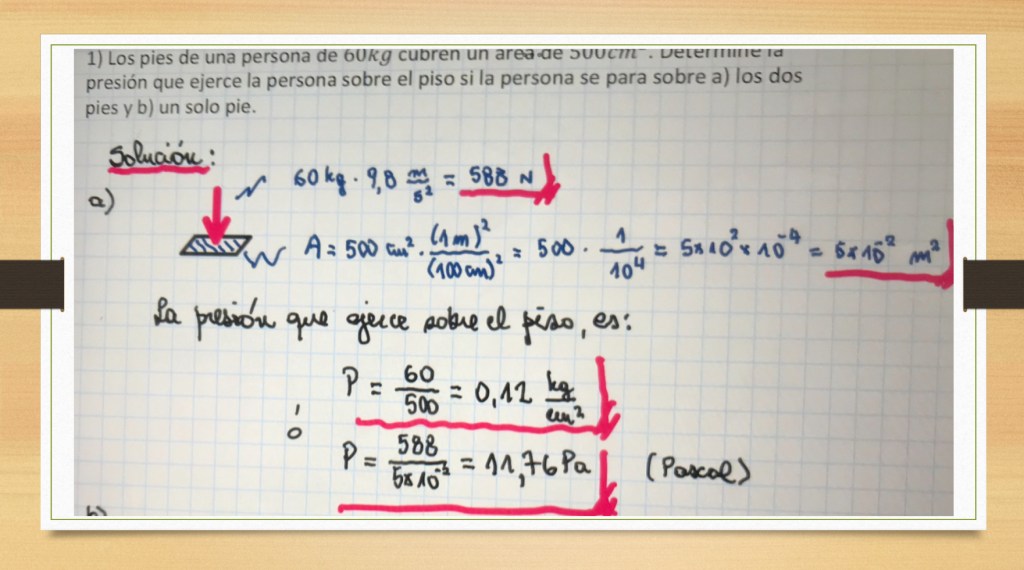 1) Los pies de una persona de 60kg cubren un área de 500cm². Determine la
presión que ejerce la persona sobre el piso si la persona se para sobre a) los dos
pies y b) un solo pie.
Solución:
a)
60 kg · 9,8 m/s² = 588 N
A = 500 cm² · (1 m)²/(100 cm)² = 500 · 1/10⁴ = 5x10² x 10⁻⁴ = 5x10⁻² m²
La presión que ejerce sobre el piso, es:
P = 60/500 = 0,12 kg/cm²
ó
P = 588/5x10⁻² = 11,76 Pa (Pascal)
b)